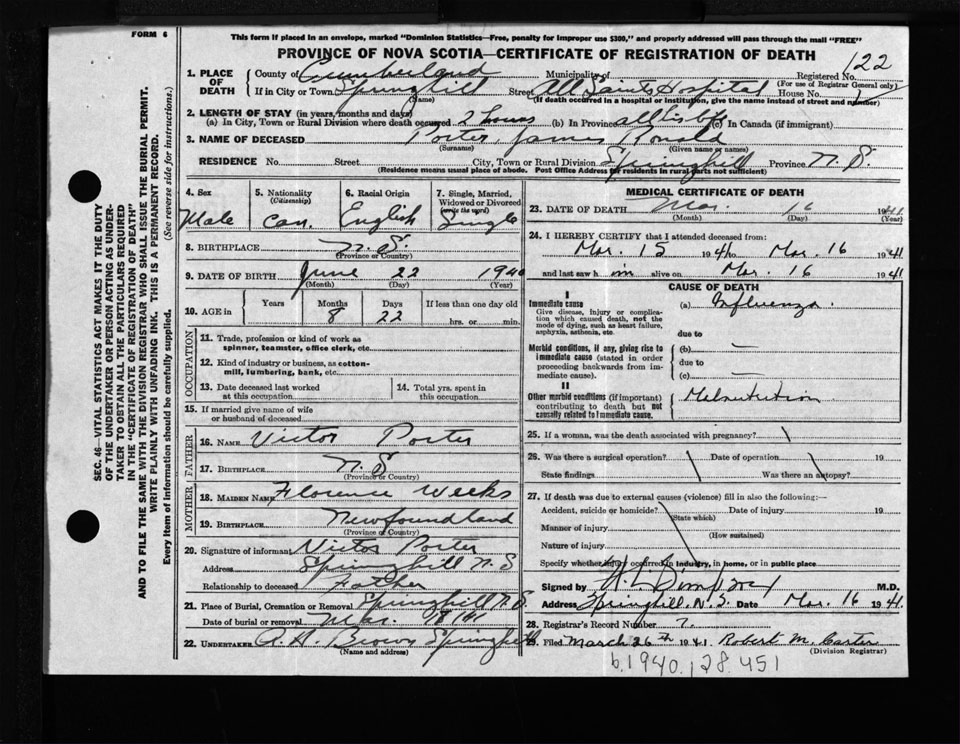 FORM 6
This form if placed in an envelope, marked "Dominion Statistics—Free, penalty for improper use $300," and properly addressed will pass through the mail "FREE"
PROVINCE OF NOVA SCOTIA—CERTIFICATE OF REGISTRATION OF DEATH
122
1. PLACE OF DEATH County of Cumberland Municipality of Registered No.
(For use of Registrar General only)
If in City or Town Springhill Street All Saints Hospital House No.
(Name) (If death occurred in a hospital or institution, give the name instead of street and number)
2. LENGTH OF STAY (in years, months and days)
(a) In City, Town or Rural Division where death occurred 2 hours (b) In Province all his life (c) In Canada (if immigrant)
3. NAME OF DECEASED Porter, James Ronald
(Surname) (Given name or names)
RESIDENCE No. Street City, Town or Rural Division Springhill Province N.S.
(Residence means usual place of abode. Post Office Address for residents in rural parts not sufficient)
4. Sex Male
5. Nationality (Citizenship) Can.
6. Racial Origin English
7. Single, Married, Widowed or Divorced (write the word) Single
8. BIRTHPLACE N. S.
(Province or Country)
9. DATE OF BIRTH June 22 1940
(Month) (Day) (Year)
10. AGE in Years Months 8 Days 22 If less than one day old hrs. or min.
OCCUPATION
11. Trade, profession or kind of work as spinner, teamster, office clerk, etc.
12. Kind of industry or business, as cotton-mill, lumbering, bank, etc.
13. Date deceased last worked at this occupation
14. Total yrs. spent in this occupation
15. If married give name of wife or husband of deceased
FATHER
16. NAME Victor Porter
17. BIRTHPLACE N. S
(Province or Country)
MOTHER
18. MAIDEN NAME Florence Weeks
19. BIRTHPLACE Newfoundland
(Province or Country)
20. Signature of informant Victor Porter
Address Springhill N. S
Relationship to deceased Father
21. Place of Burial, Cremation or Removal Springhill N. S.
Date of burial or removal Mar. 41
22. UNDERTAKER A. H. Brown Springhill
(Name and address)
MEDICAL CERTIFICATE OF DEATH
23. DATE OF DEATH Mar. 16 1941
(Month) (Day) (Year)
24. I HEREBY CERTIFY that I attended deceased from:
Mar. 15 1941 to Mar. 16 1941
and last saw h im alive on Mar. 16 1941
CAUSE OF DEATH
I
Immediate cause (a) Influenza.
Give disease, injury or complication which caused death, not the mode of dying, such as heart failure, asphyxia, asthenia, etc.
due to
Morbid conditions, if any, giving rise to immediate cause (stated in order proceeding backwards from immediate cause). (b) —
due to
(c) —
II
Other morbid conditions (if important) contributing to death but not causally related to immediate cause. Malnutrition
25. If a woman, was the death associated with pregnancy?
26. Was there a surgical operation? Date of operation 19
State findings Was there an autopsy?
27. If death was due to external causes (violence) fill in also the following:—
Accident, suicide or homicide? Date of injury 19
(State which)
Manner of injury
(How sustained)
Nature of injury
Specify whether injury occurred in industry, in home, or in public place
Signed by M.D.
Address Springhill, N. S. Date Mar. 16 1941
28. Registrar's Record Number 7.
29. Filed March 26th 1941 Robert M. Carter
(Division Registrar)
b. 1940. 128. 451
SEC. 46—VITAL STATISTICS ACT MAKES IT THE DUTY
OF THE UNDERTAKER OR PERSON ACTING AS UNDERTAKER TO OBTAIN ALL THE PARTICULARS REQUIRED
IN THE "CERTIFICATE OF REGISTRATION OF DEATH"
AND TO FILE THE SAME WITH THE DIVISION REGISTRAR WHO SHALL ISSUE THE BURIAL PERMIT.
WRITE PLAINLY WITH UNFADING INK. THIS IS A PERMANENT RECORD.
Every item of information should be carefully supplied. (See reverse side for instructions.)